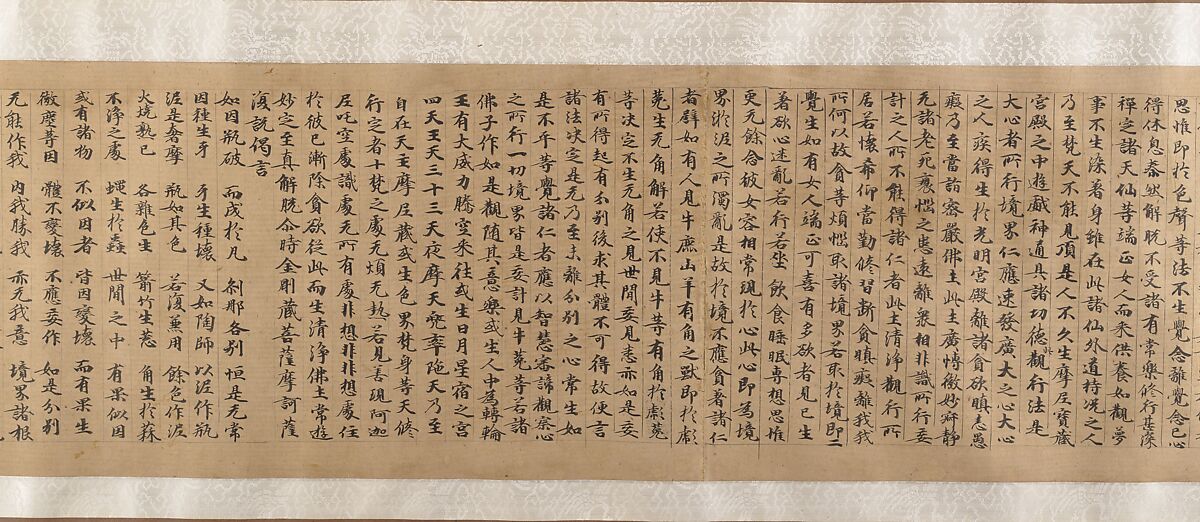 思惟即於色聲等法不生覺念離覺念已心
得休息泰然解脫不受諸有常樂修行甚深
禪定諸天仙等端正女人而来供養如觀夢
事不生染著身雖在此諸仙外道持呪之人
乃至梵天不能見頂是人不久生摩尼寶藏
宮殿之中遊戲神通具諸切德觀行法是
大心者所行境界仁應速發廣大之心大心
之人疾得生於光明宮殿離諸貪欲瞋恚愚
癡乃至當詣密嚴佛土此土廣愽微妙寂靜
无諸老死衰惱之患遠離衆相非識所行妄
計之人所不能得諸仁者此土清淨觀行所
居若懷希仰當勤修習斷貪瞋癡離我我
所何以故貪等煩惱取諸境界若取於境即二
覺生如有女人端正可喜有多欲者見已生
著欲心迷亂若行若坐飲食睡眠專想思惟
更无餘念彼女容相常現於心此心即為境
界淤泥之所濁亂是故於境不應貪著諸仁
者譬如有人見牛鹿山羊有角之獸即於彪
菟生无角解若使不見牛等有角於彪菟
等决定不生无角之見世間妄見悉亦如是妄
有所得起有分別後求其體不可得故便言
諸法决定是无乃至未離分別之心常生如
是不平等覺諸仁者應以智慧審諦觀察心
之所行一切境界皆是妄計見牛菟等若諸
佛子作如是觀随其意樂或生人中為轉輪
王有大威力騰空来往或生日月星宿之宮
四天王天三十三天夜摩天兜率陁天乃至
自在天主摩尼藏或生色界梵身等天修
行定者十梵之處无煩无熱若見善現阿迦
尼吒空處識處无所有處非想非非想處住
於彼已漸除貪欲從此而生清淨佛土常遊
妙定至真解脫尒時金剛藏菩薩摩訶薩
復說偈言
如因瓶破 而成於凡 刹那各別 恒是无常
因種生牙 牙生種壞 又如陶師 以泥作瓶
泥是奢摩 瓶如其色 若復兼用 餘色作泥
火燒熟已 各雜色生 箭竹生葱 角生於蒜
不淨之處 蠅生於蟲 世間之中 有果似因
或有諸物 不似因者 皆因變壞 而有果生
微塵等因 體不變壞 不應妄作 如是分別
无能作我 內我勝我 亦无我意 境界諸根